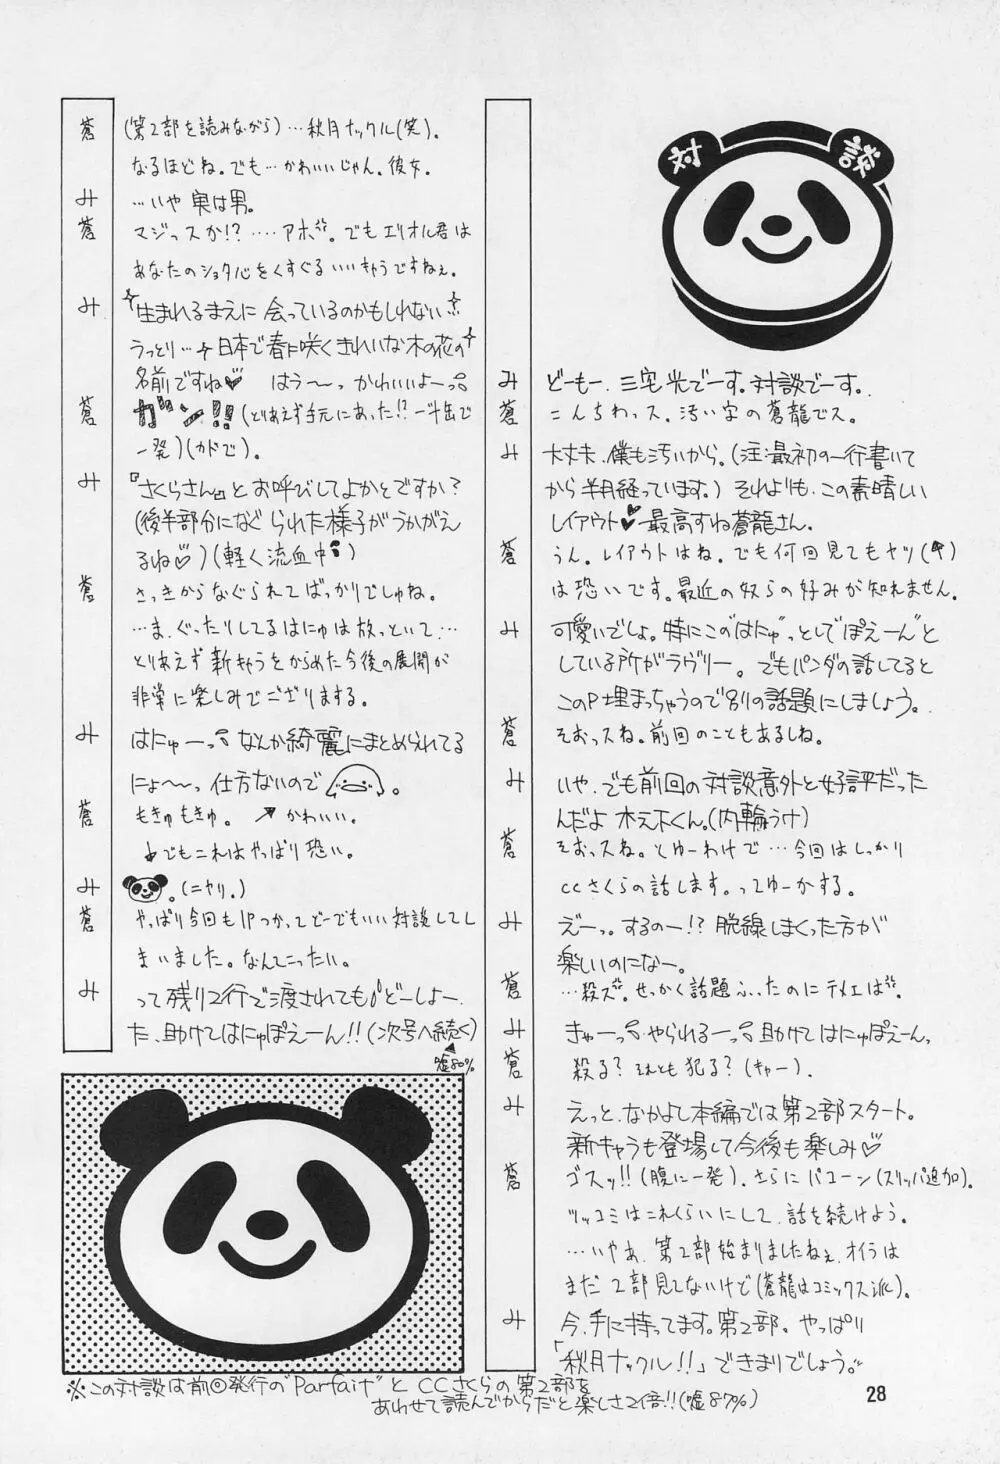 対談
み どーもー、三宅光でーす。対談でーす。
蒼 こんちわっス。汚い字の蒼龍でス。
み 大丈夫、僕も汚いから。(注:最初の一行書いて
から半月経っています。)それよりも、この素晴しい
レイアウト♥最高すね蒼龍さん。
蒼 うん。レイアウトはね。でも何回見てもヤツ
は恐いです。最近の奴らの好みが知れません。
み 可愛いでしょ。特にこの"はにゅ"っとして"ぽえーん"と
している所がラヴリー。でもパンダの話してると
このP埋まっちゃうので別の話題にしましょう。
蒼 そおっスね。前回のこともあるしね。
み いや、でも前回の対談意外と好評だった
んだよ木之下くん。(内輪うけ)
蒼 そおっスね。とゆーわけで…今回はしっかり
CCさくらの話します。ってゆーかする。
み えーっ。するのー!?脱線しまくった方が
楽しいのになー。
蒼 …殺ズ。せっかく話題ふったのにテメエは゛。
み きゃーっ やられるーっ 助けてはにゅぽえーん。
蒼 殺る?それとも犯る?(キャー)。
み えっと、なかよし本編では第2部スタート。
新キャラも登場して今後も楽しみ♡
蒼 ゴスッ!!(腹に一発)、さらにパコーン(スリッパ追加)。
ツッコミはこれくらいにして、話を続けよう。
…いやあ、第2部始まりましたねぇ、オイラは
まだ2部見てないけど(蒼龍はコミックス派)。
み 今、手に持ってます。第2部。やっぱり
「秋月ナックル!!」できまりでしょう。
蒼 (第2部を読みながら)…秋月ナックル(笑)。
なるほどね。でも…かわいいじゃん。彼女。
み …いや 実は男。
蒼 マジっスか!?……アホ゛。でもエリオル君は
あなたのショタ心をくすぐるいいキャラですねぇ。
み "生まれるまえに会っているのかもしれない"
うっとり…日本で春に咲くきれいな木の花の
名前ですね♡ はう〜っ かわいいよーっ
蒼 ガン!!(とりあえず手元にあった!?一斗缶で
一発)(カドで)。
み 『さくらさん』とお呼びしてよかとですか?
(後半部分になぐられた様子がうかがえ
るね♡)(軽く流血中)
蒼 さっきからなぐられてばっかりでしゅね。
…ま、ぐったりしてるはにゅは放っといて…
とりあえず新キャラをからめた今後の展開が
非常に楽しみでござりまする。
み はにゅーっ なんか綺麗にまとめられてる
にょ〜っ 仕方ないので 。
蒼 もきゅもきゅ。 ↗かわいい。
でもこれはやっぱり恐い。
み 。(ニヤリ。)
蒼 やっぱり今回も1Pつかってどーでもいい対談してし
まいました。なんてこったい。
み って残り2行で渡されても どーしよー。
た、助けてはにゅぽえーん!!(次号へ続く)
嘘80%
※この対談は前回発行の"Parfait"とCCさくらの第2部を
あわせて読んでからだと楽しさ2倍!!(嘘87%)
28